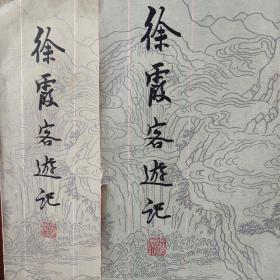 徐霞客遊记
徐霞客遊记